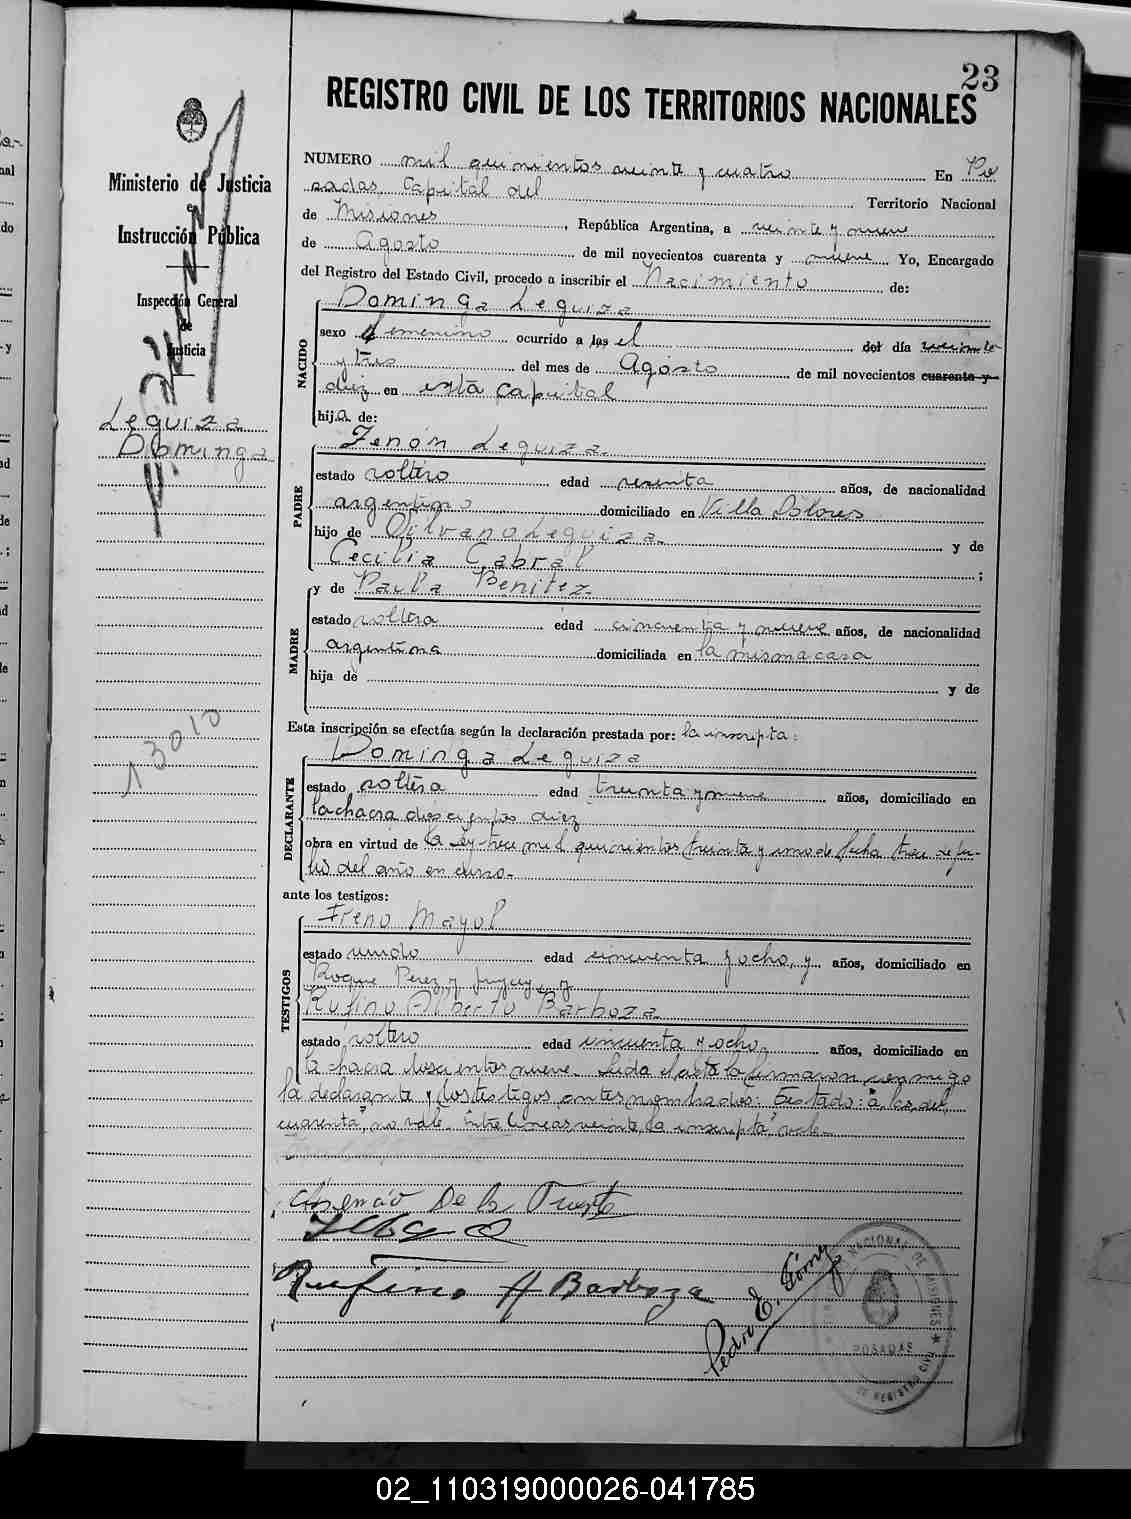 23
REGISTRO CIVIL DE LOS TERRITORIOS NACIONALES
Ministerio de Justicia
e
Instrucción Pública
Inspección General
de
Justicia
Leguiza
Dominga
13010
NUMERO mil quinientos veinte y cuatro En Po
sadas, Capital del Territorio Nacional
de Misiones, República Argentina, a veinte y nueve
de Agosto de mil novecientos cuarenta y nueve Yo, Encargado
del Registro del Estado Civil, procedo a inscribir el Nacimiento de:
NACIDO
Dominga Leguiza
sexo femenino ocurrido a las el del día veinte
y tres del mes de Agosto de mil novecientos cuarenta y
diez en esta capital
hija de:
PADRE
Zenón Leguiza.
estado soltero edad sesenta años, de nacionalidad
argentino domiciliado en Villa Dolores
hijo de Silvano Leguiza. y de
Cecilia Cabral ;
MADRE
y de Paula Benitez.
estado soltera edad cincuenta y nueve años, de nacionalidad
argentina domiciliada en la misma casa
hija de y de
Esta inscripción se efectúa según la declaración prestada por: la inscripta:
DECLARANTE
Dominga Leguiza
estado soltera edad treinta y nueve años, domiciliado en
la chacra doscientos diez
obra en virtud de la ley trece mil quinientos treinta y uno de fecha trece de ju-
lio del año en curso.
ante los testigos:
TESTIGOS
Ireno Mayol
estado viudo edad cincuenta y ocho, y años, domiciliado en
Roque Perez y Jujuy, y
Rufino Alberto Barboza.
estado soltero edad cincuenta y ocho, años, domiciliado en
la chacra doscientos nueve. Leida el acta la firmaron conmigo
la declarante y los testigos antes nombrados: Testado: a las, del,
cuarenta, no vale. Entre lineas veinte, la inscripta, vale.
De la Fuente
Rufino A Barboza
Pedro E.
NACIONAL DE MISIONES
POSADAS
DE REGISTRO CIVIL
02_110319000026-041785